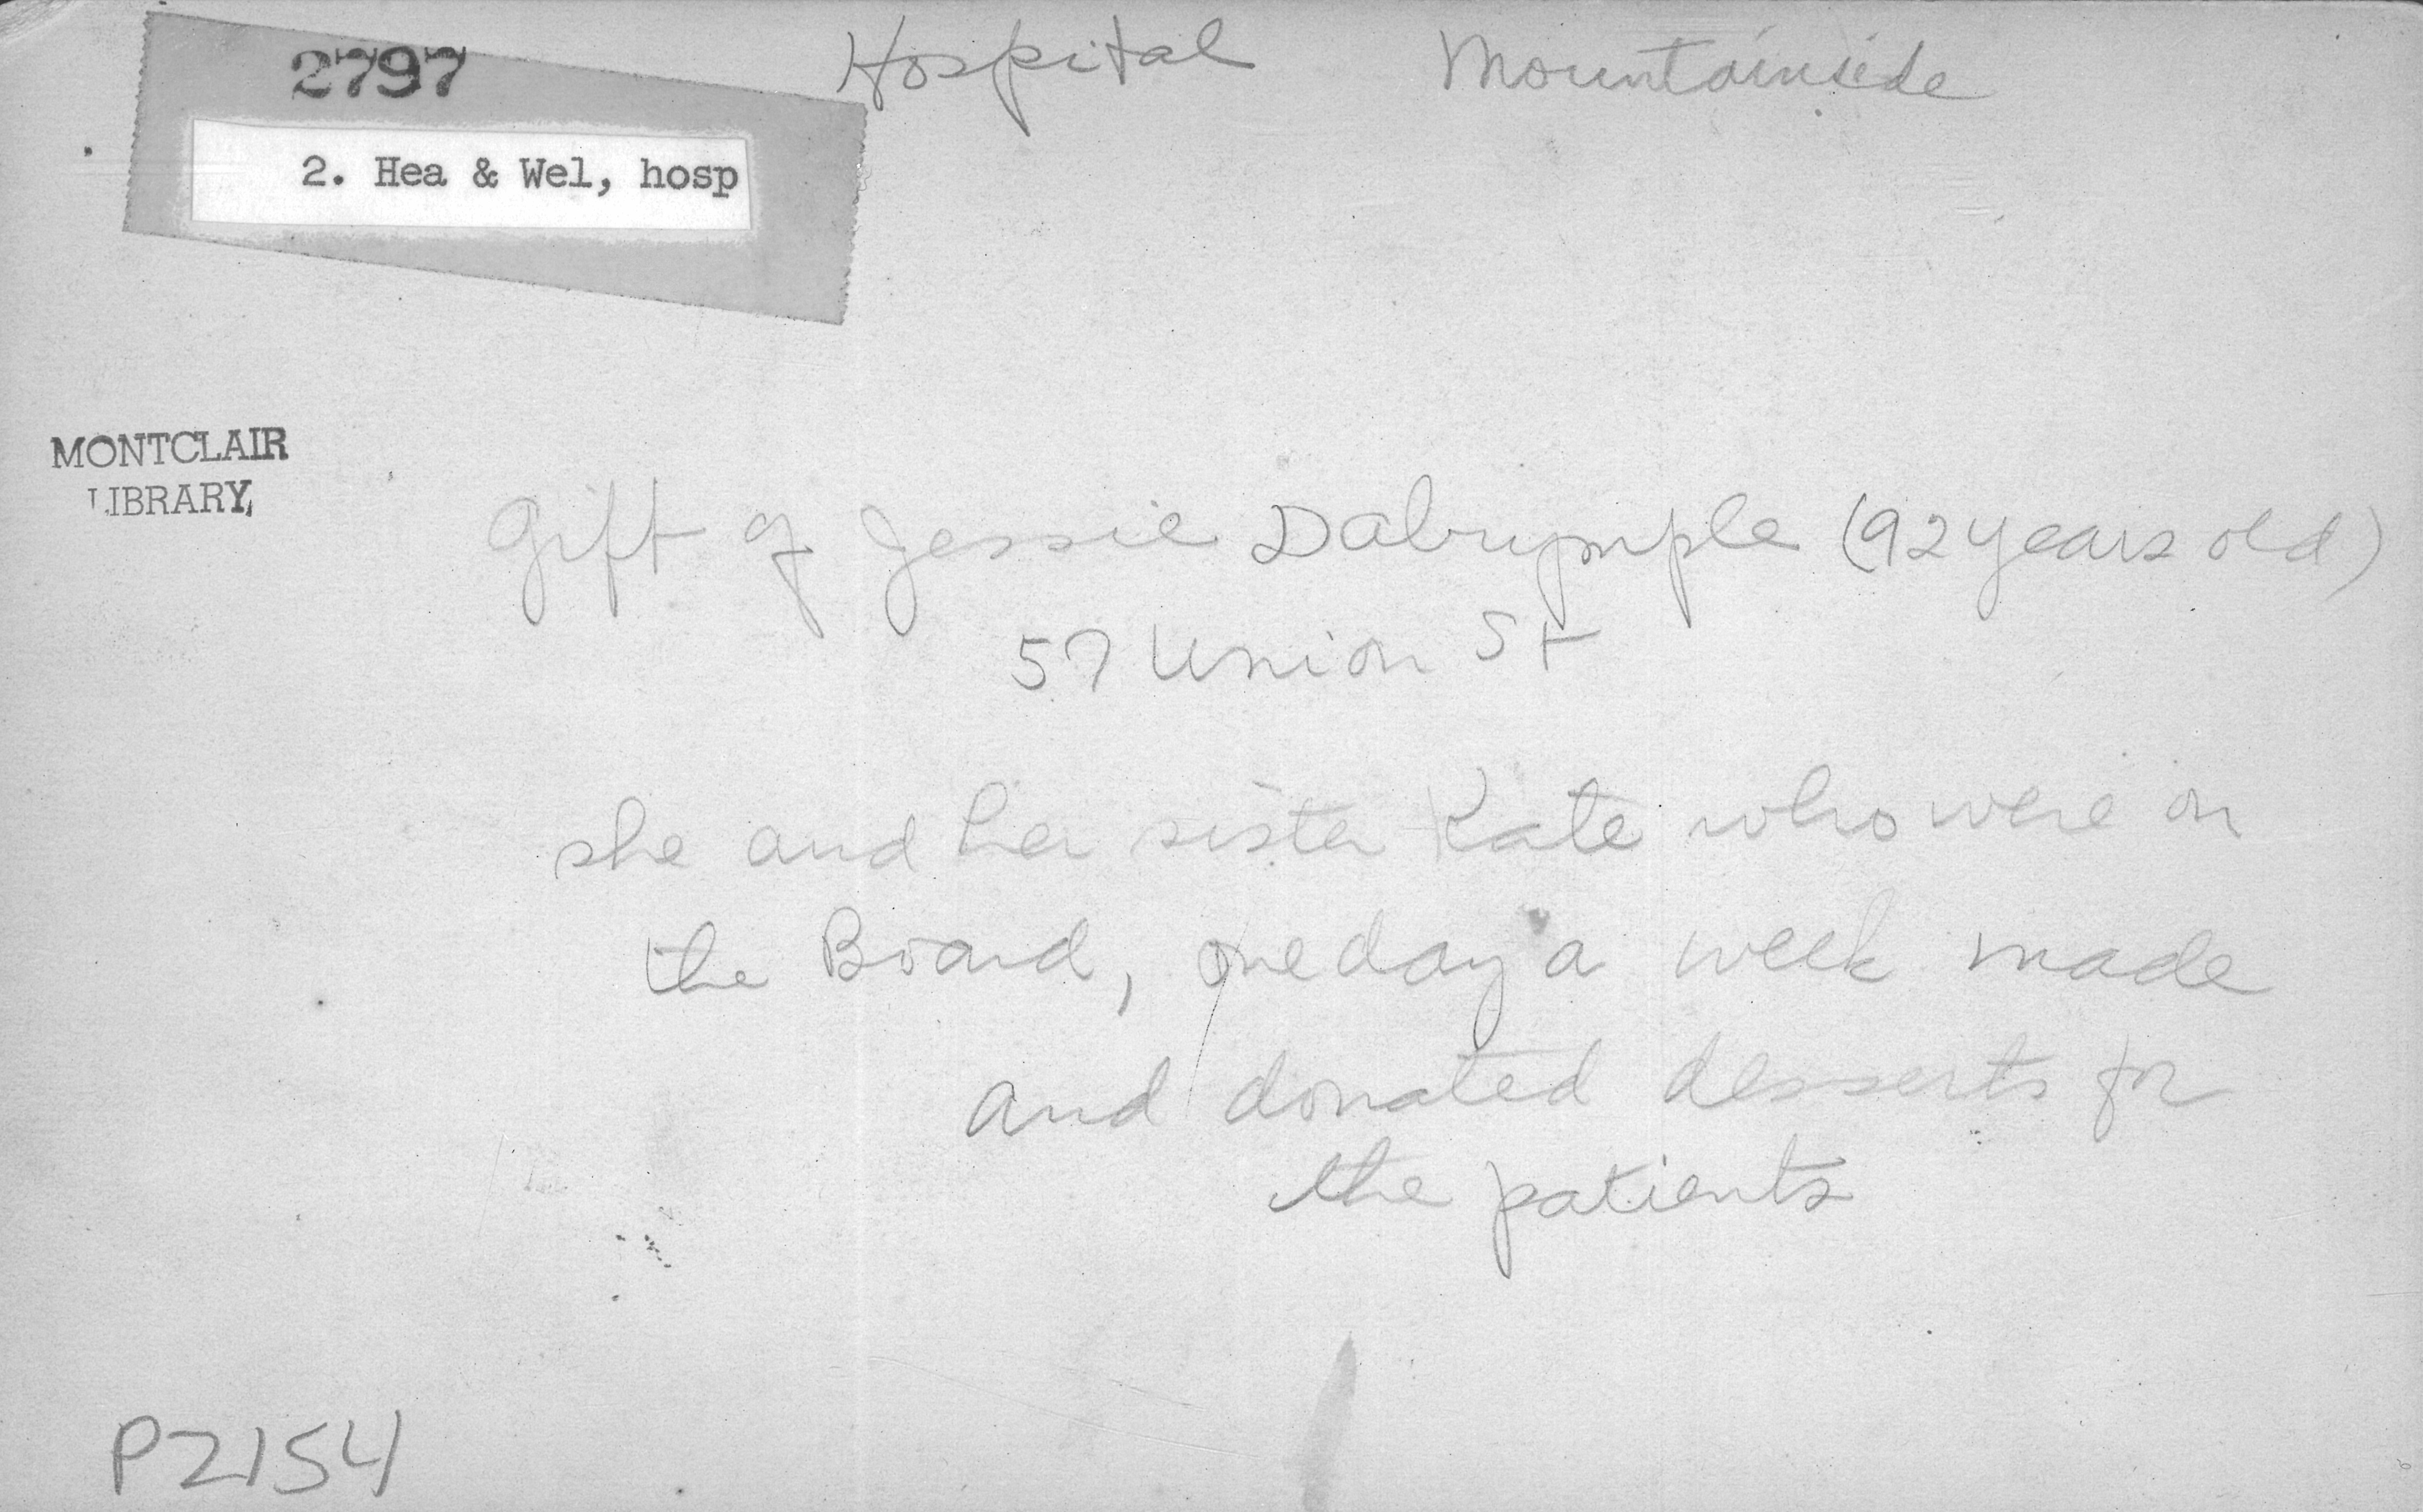 2797
Hospital Mountainside
2. Hea & Wel, hosp
MONTCLAIR
LIBRARY
Gift of Jessie Dalrymple (92 years old)
57 Union St
she and her sister Kate who were on
the Board, one day a week made
and donated desserts for
the patients
P2154